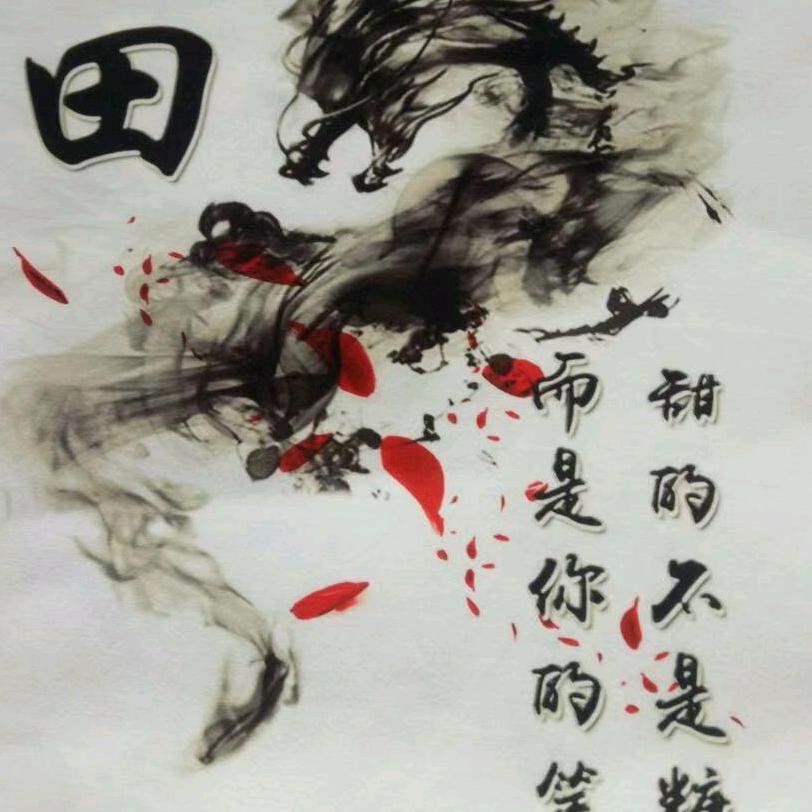 田
甜的不是糖
而是你的笑